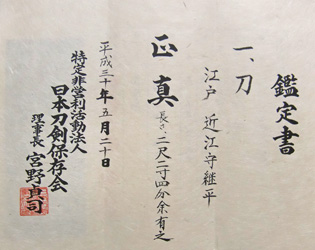 鑑定書
一、刀
江戸 近江守継平
正真 長さ二尺二寸四分余有之
平成三十年五月二十日
特定非営利活動法人
日本刀剣保存会
理事長 宮野真司